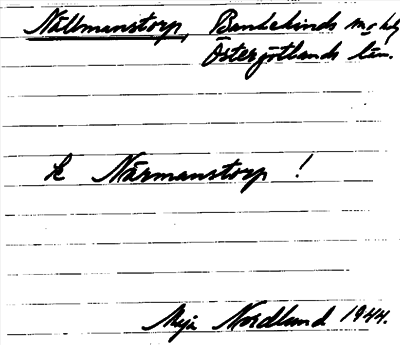 Nällmanstorp, Bankekinds sn & hd
Östergötlands län.
k Närmanstorp !
Maja Nordlund 1944.